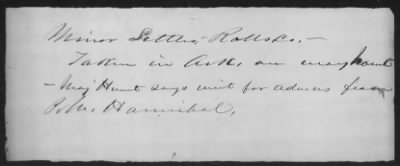 Minor Settles, Ralls Co. —
Taken in Ark, on
— Maj Hunt says wait for advices from
P.M. Hannibal.